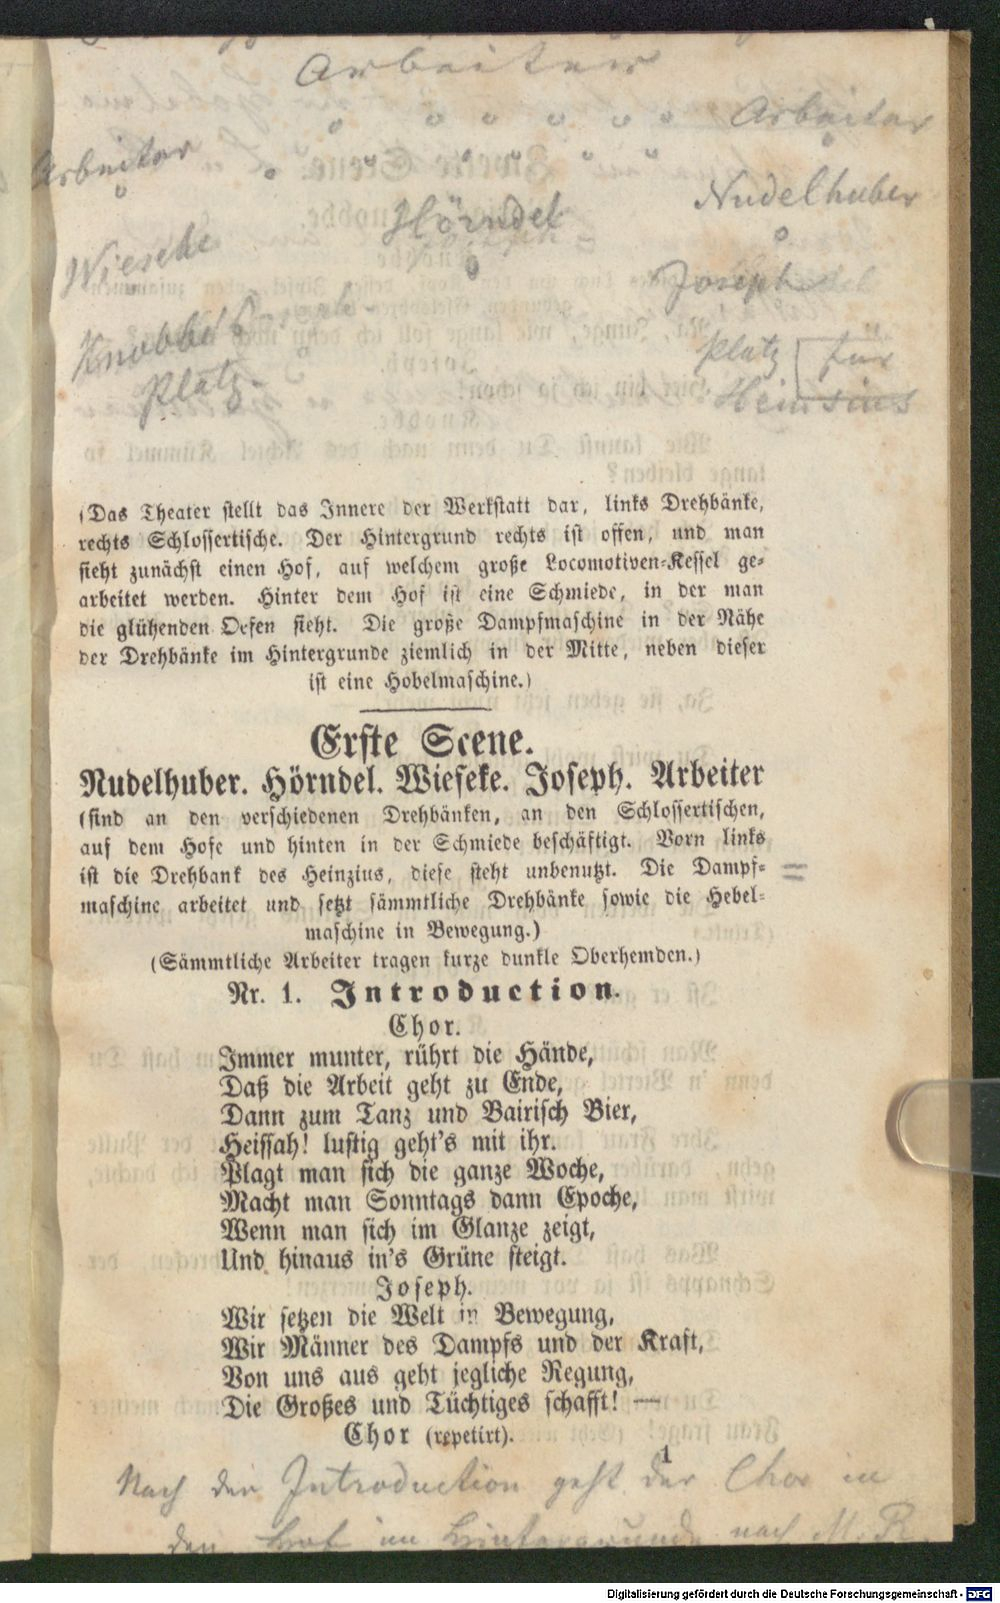 Arbeiter
Arbeiter
Arbeiter
Nudelhuber
Hörndel
Wieseke
Joseph
Knobbe
Platz
Platz für
Heinsius
(Das Theater stellt das Innere der Werkstatt dar, links Drehbänke,
rechts Schlossertische. Der Hintergrund rechts ist offen, und man
sieht zunächst einen Hof, auf welchem große Locomotiven-Kessel ge-
arbeitet werden. Hinter dem Hof ist eine Schmiede, in der man
die glühenden Oefen sieht. Die große Dampfmaschine in der Nähe
der Drehbänke im Hintergrunde ziemlich in der Mitte, neben dieser
ist eine Hobelmaschine.)
Erste Scene.
Nudelhuber. Hörndel. Wieseke. Joseph. Arbeiter
(sind an den verschiedenen Drehbänken, an den Schlossertischen,
auf dem Hofe und hinten in der Schmiede beschäftigt. Vorn links
ist die Drehbank des Heinzius, diese steht unbenutzt. Die Dampf-
maschine arbeitet und setzt sämmtliche Drehbänke sowie die Hebel-
maschine in Bewegung.)
(Sämmtliche Arbeiter tragen kurze dunkle Oberhemden.)
Nr. 1. Introduction.
Chor.
Immer munter, rührt die Hände,
Daß die Arbeit geht zu Ende,
Dann zum Tanz und Bairisch Bier,
Heissah! lustig geht's mit ihr.
Plagt man sich die ganze Woche,
Macht man Sonntags dann Epoche,
Wenn man sich im Glanze zeigt,
Und hinaus in's Grüne steigt.
Joseph.
Wir setzen die Welt in Bewegung,
Wir Männer des Dampfs und der Kraft,
Von uns aus geht jegliche Regung,
Die Großes und Tüchtiges schafft! —
Chor (repetirt).
1
Nach der Introduction geht der Chor in
den Hof im Hintergrunde nach M. R.
Digitalisierung gefördert durch die Deutsche Forschungsgemeinschaft - DFG